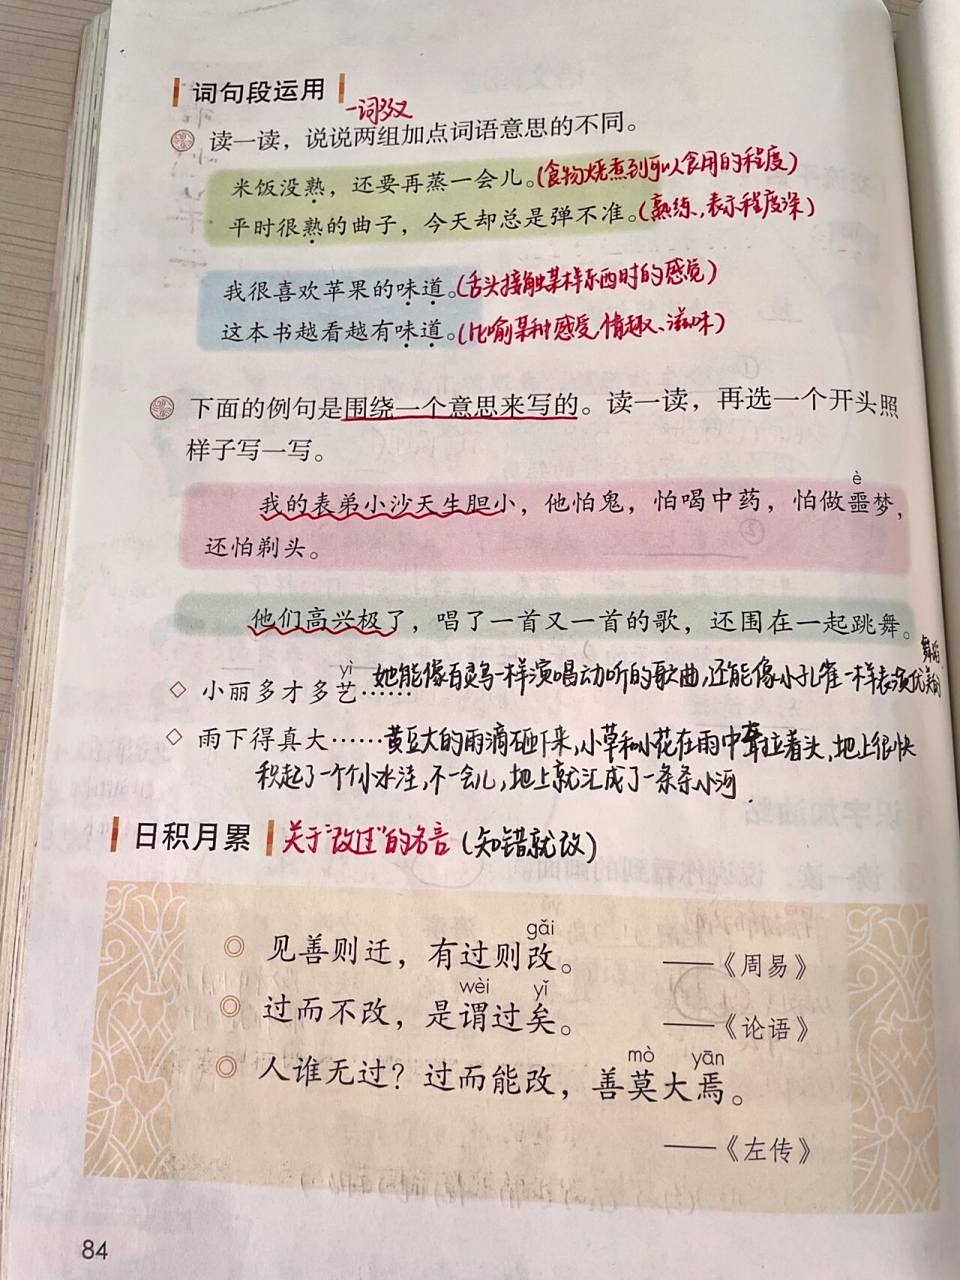 词句段运用
一词多义
读一读，说说两组加点词语意思的不同。
米饭没熟，还要再蒸一会儿。(食物烧煮到可以食用的程度)
平时很熟的曲子，今天却总是弹不准。(熟练,表示程度深)
我很喜欢苹果的味道。(舌头接触某样东西时的感觉)
这本书越看越有味道。(比喻某种感受、情趣、滋味)
下面的例句是围绕一个意思来写的。读一读，再选一个开头照
样子写一写。
è
我的表弟小沙天生胆小，他怕鬼，怕喝中药，怕做噩梦，
还怕剃头。
他们高兴极了，唱了一首又一首的歌，还围在一起跳舞。
yì
舞蹈
小丽多才多艺……她能像百灵鸟一样演唱动听的歌曲,还能像小孔雀一样表演优美的
雨下得真大……黄豆大的雨滴砸下来,小草和小花在雨中耷拉着头,地上很快
积起了一个个小水洼,不一会儿,地上就汇成了一条条小河.
日积月累 关于"改过"的名言(知错就改)
gǎi
见善则迁，有过则改。 ——《周易》
wèi yǐ
过而不改，是谓过矣。 ——《论语》
mò yān
人谁无过？过而能改，善莫大焉。
——《左传》
84